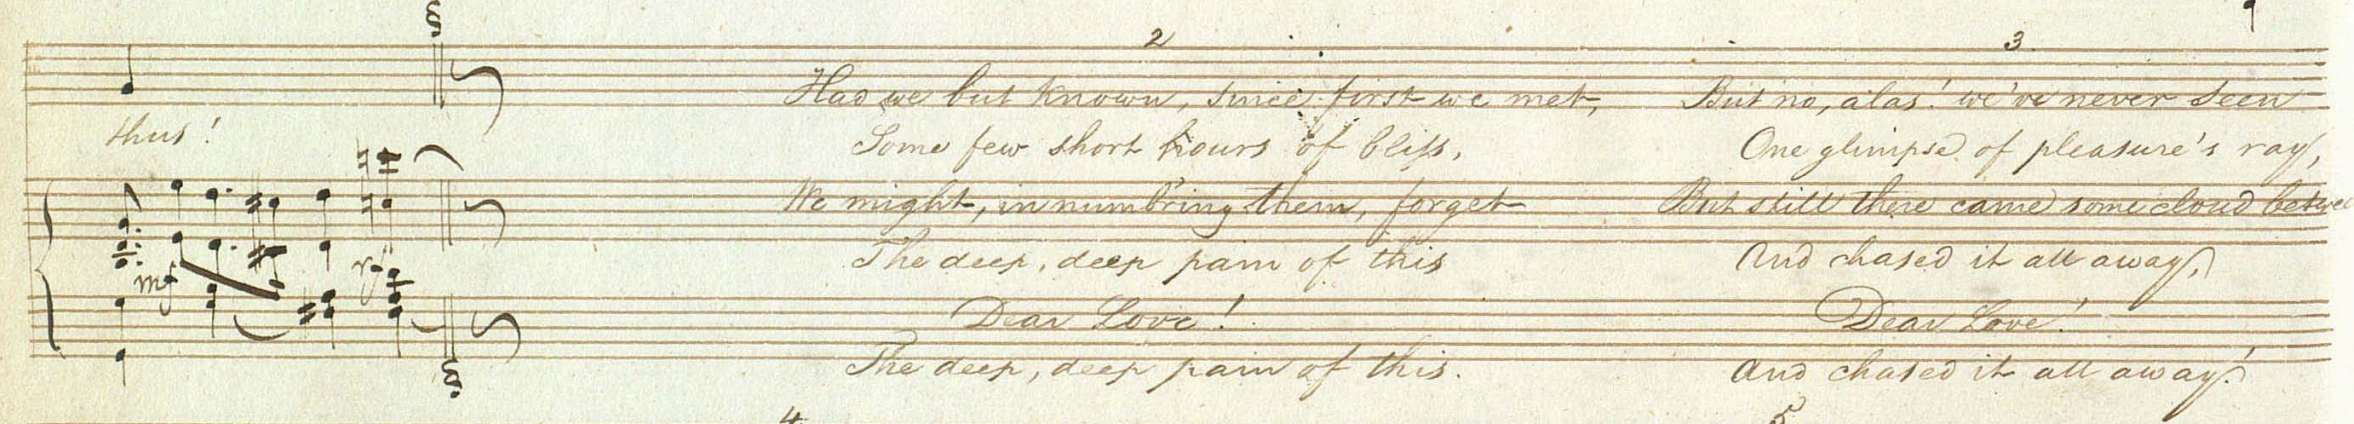 thus!
mf
rf
2
Had we but known, since first we met,
Some few short hours of bliss,
We might, in numb'ring them, forget
The deep, deep pain of this
Dear Love!
The deep, deep pain of this.
3
But no, alas! we've never seen
One glimpse of pleasure's ray,
But still there came some cloud betwee
And chased it all away,
Dear Love!
And chased it all away!
4
5